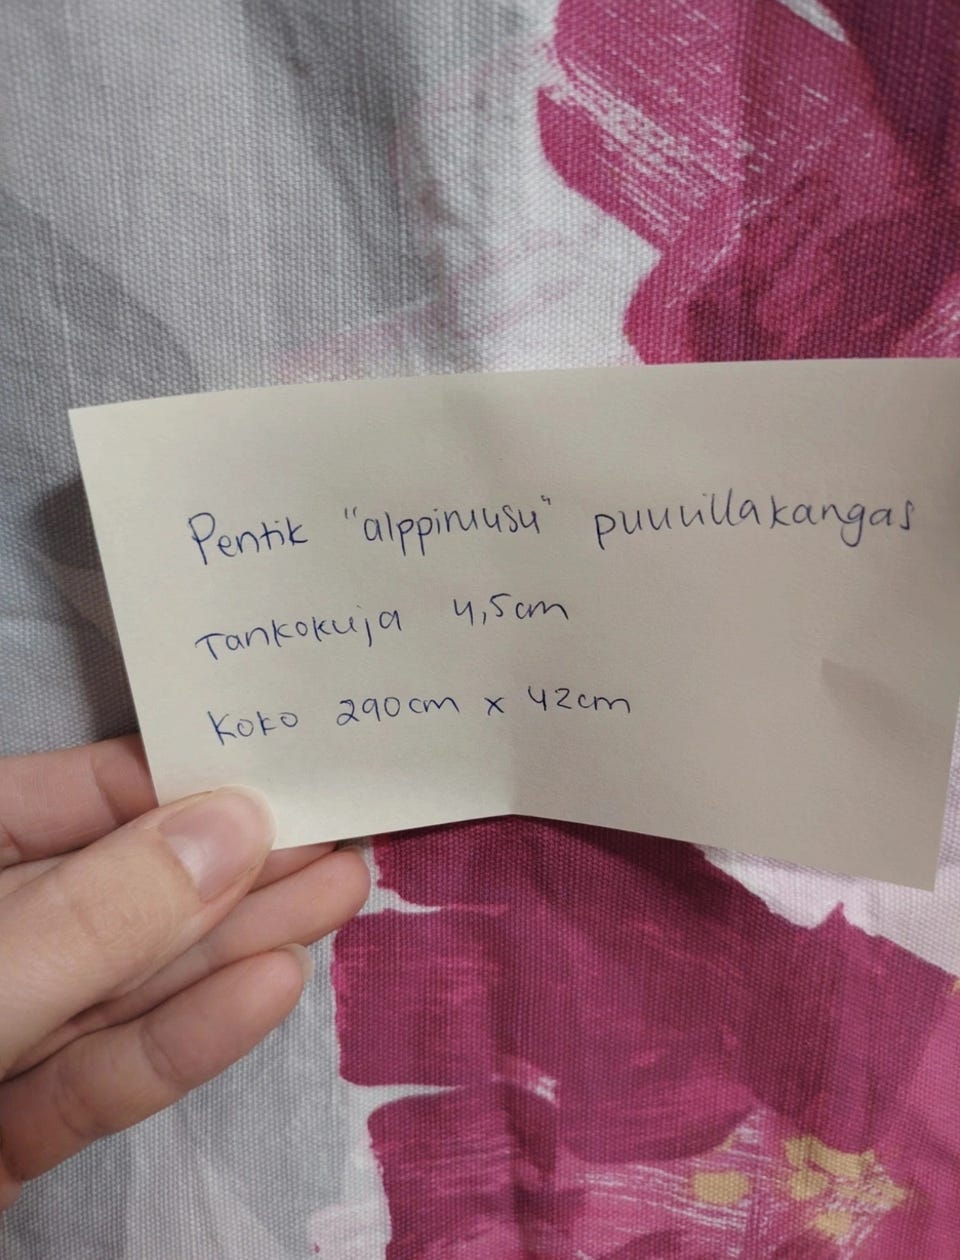 Pentik "alppiruusu" puuvillakangas
Tankokuja 4,5cm
Koko 290cm x 42cm